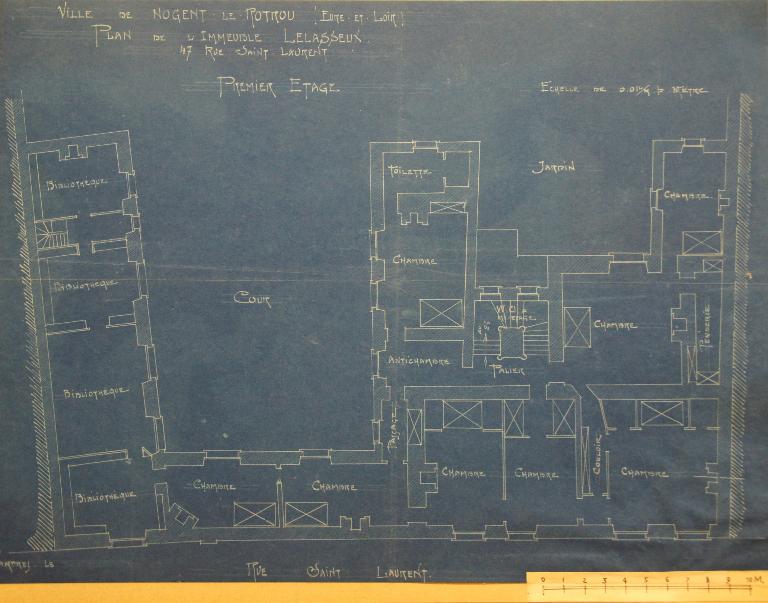 VILLE DE NOGENT LE ROTROU (EURE ET LOIR)
PLAN DE L'IMMEUBLE LELASSEUX
47 RUE SAINT LAURENT
PREMIER ETAGE
ECHELLE DE 0.01 P. METRE
BIBLIOTHEQUE
TOILETTE
JARDIN
CHAMBRE
BIBLIOTHEQUE
CHAMBRE
COUR
W.C. à
MI-ETAGE
CHAMBRE
PENDERIE
ANTICHAMBRE
PALIER
BIBLIOTHEQUE
PASSAGE
COULOIR
CHAMBRE
CHAMBRE
CHAMBRE
BIBLIOTHEQUE
CHAMBRE
CHAMBRE
RUE SAINT LAURENT.
0 1 2 3 4 5 6 7 8 9 10 M.